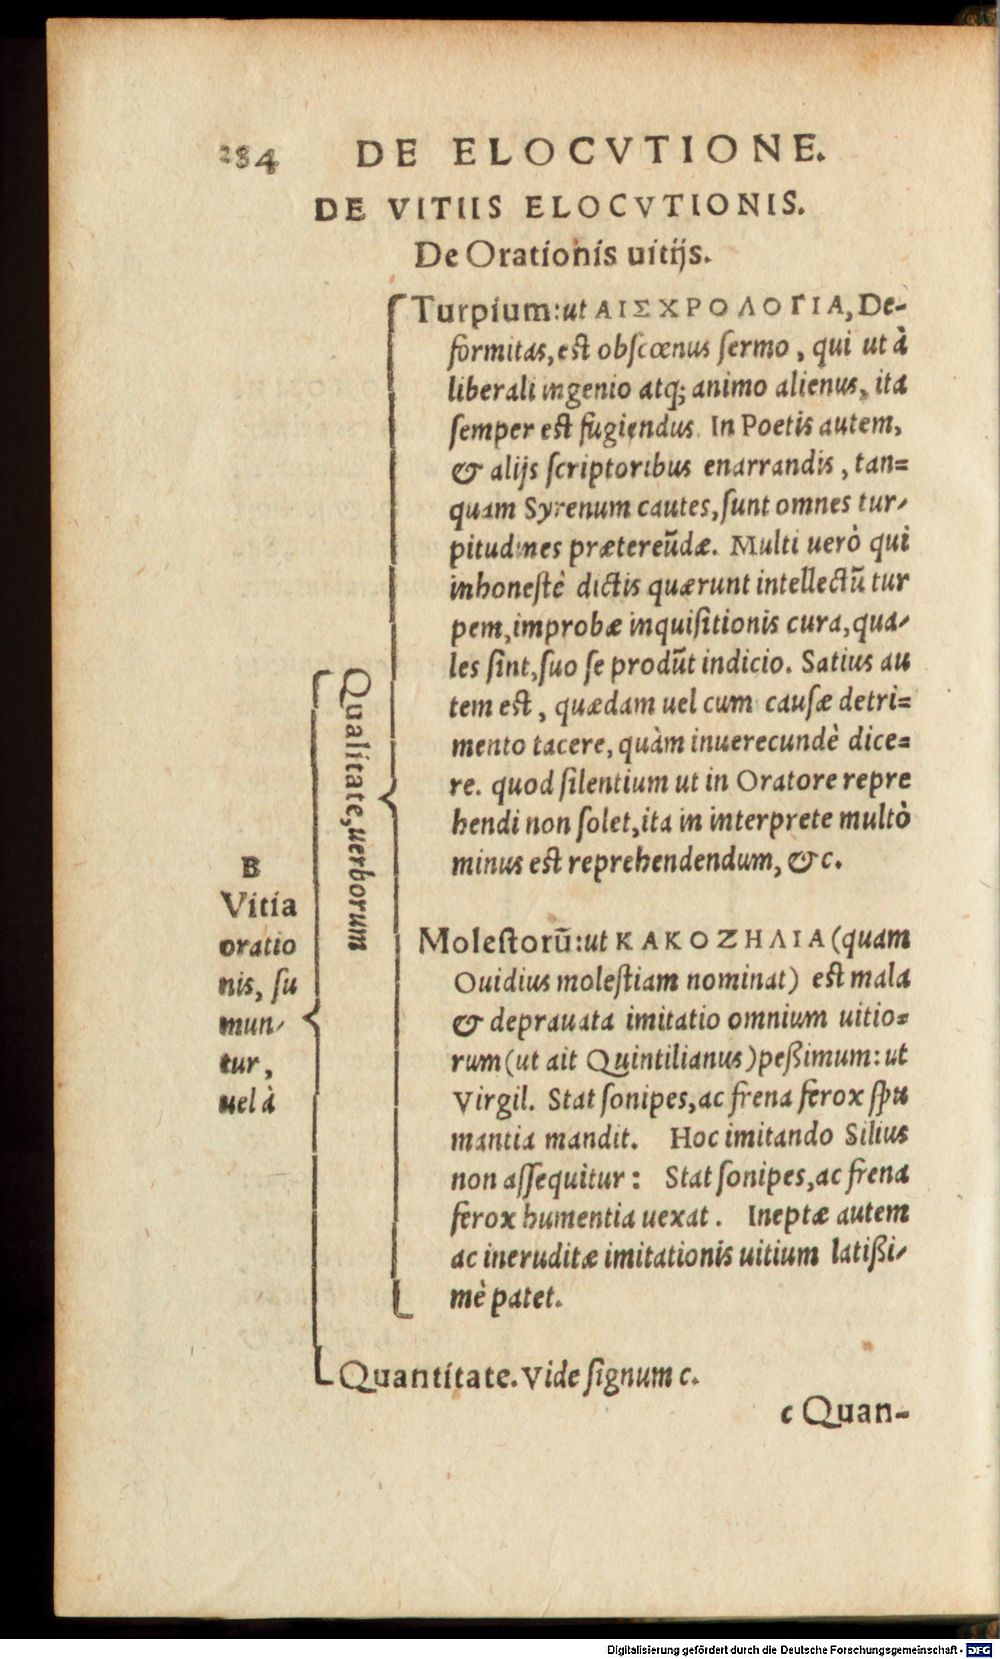 284 DE ELOCVTIONE.
DE VITIIS ELOCVTIONIS.
De Orationis uitijs.
B
Vitia
oratio
nis, su
mun-
tur,
uel à
Qualitate, uerborum
Turpium: ut ΑΙΣΧΡΟΛΟΓΙΑ, De-
formitas, est obscœnus sermo, qui ut à
liberali ingenio atq; animo alienus, ita
semper est fugiendus. In Poetis autem,
& alijs scriptoribus enarrandis, tan=
quam Syrenum cautes, sunt omnes tur-
pitudines prætereũdæ. Multi uerò qui
inhonestè dictis quærunt intellectũ tur
pem, improbæ inquisitionis cura, qua-
les sint, suo se prodũt indicio. Satius au
tem est, quædam uel cum causæ detri=
mento tacere, quàm inuerecundè dice=
re. quod silentium ut in Oratore repre
hendi non solet, ita in interprete multò
minus est reprehendendum, &c.
Molestorũ: ut ΚΑΚΟΖΗΛΙΑ (quam
Ouidius molestiam nominat) est mala
& deprauata imitatio omnium uitio=
rum (ut ait Quintilianus) peßimum: ut
Virgil. Stat sonipes, ac frena ferox spu
mantia mandit. Hoc imitando Silius
non assequitur: Stat sonipes, ac frena
ferox humentia uexat. Ineptæ autem
ac ineruditæ imitationis uitium latißi-
mè patet.
Quantitate. Vide signum c.
c Quan-
Digitalisierung gefördert durch die Deutsche Forschungsgemeinschaft - DFG